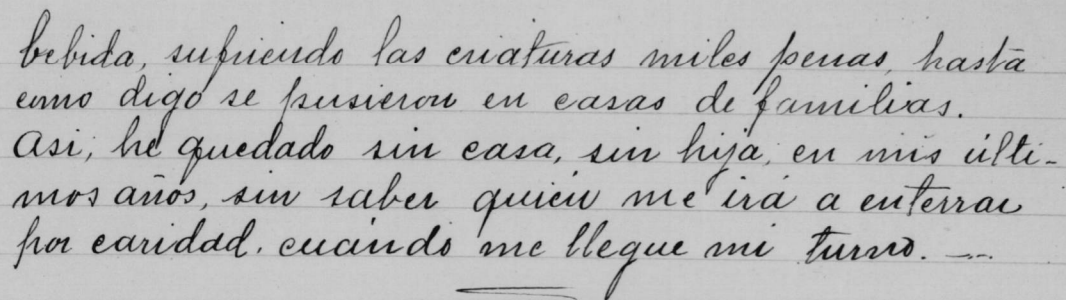 bebida, sufriendo las criaturas miles penas, hasta
como digo se pusieron en casas de familias.
Asi, he quedado sin casa, sin hija, en mis últi-
mos años, sin saber quién me irá a enterrar
por caridad, cuándo me llegue mi turno. —..